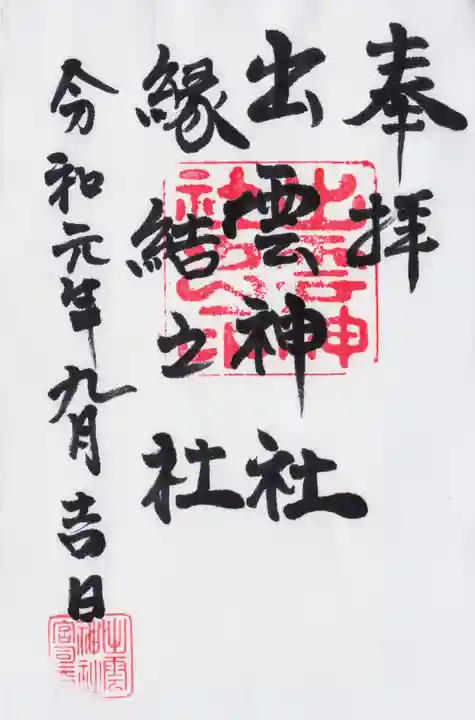 奉拝
出雲神社
縁結之社
令和元年九月吉日
出雲神社之印
出雲神社宮司之印